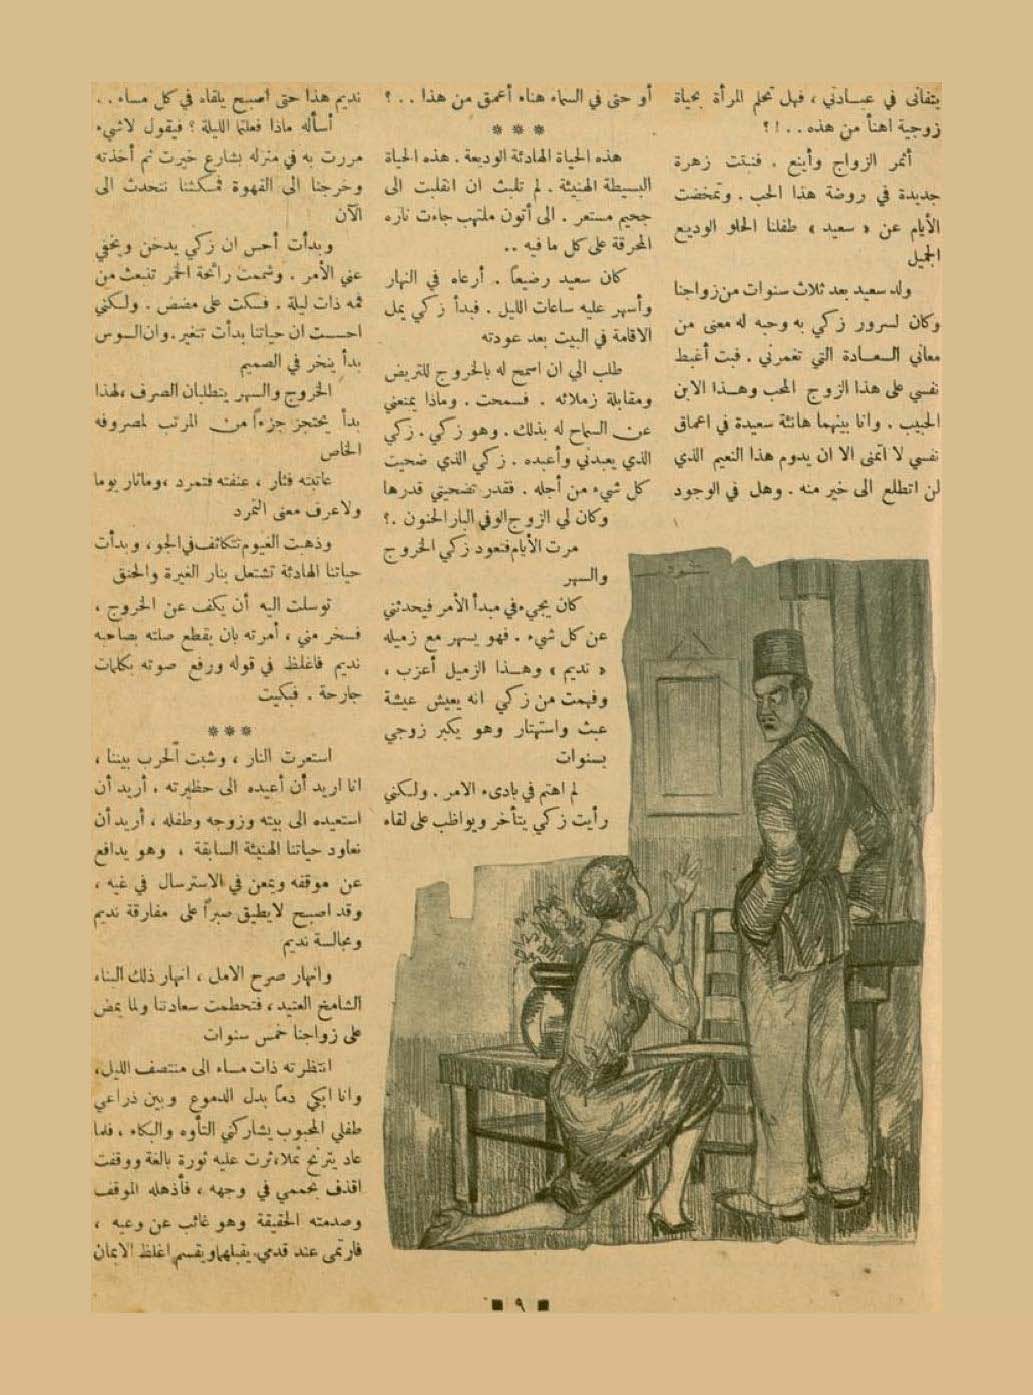 يتفانى في عبادتي ، فهل تحلم المرأة بحياة
زوجية اهنأ من هذه . . ! ؟
أثمر الزواج وأينع . فنبتت زهرة
جديدة في روضة هذا الحب . وتمخضت
الأيام عن « سعيد » طفلنا الحلو الوديع
الجميل
ولد سعيد بعد ثلاث سنوات من زواجنا
وكان لسرور زكي به وحبه له معنى من
معاني السعادة التي تغمرني . فبت أغبط
نفسي على هذا الزوج المحب وهذا الابن
الحبيب . وانا بينهما هانئة سعيدة في اعماق
نفسي لا اتمنى الا ان يدوم هذا النعيم الذي
لن اتطلع الى خير منه . وهل في الوجود
أو حتى في السماء هناء أعمق من هذا . . ؟
* * *
هذه الحياة الهادئة الوديعة . هذه الحياة
البسيطة الهنيئة . لم تلبث ان انقلبت الى
جحيم مستعر . الى أتون ملتهب جاءت ناره
المحرقة على كل ما فيه ..
كان سعيد رضيعاً . أرعاه في النهار
وأسهر عليه ساعات الليل . فبدأ زكي يمل
الاقامة في البيت بعد عودته
طلب الي ان اسمح له بالخروج للتريض
ومقابلة زملائه . فسمحت . وماذا يمنعني
عن السماح له بذلك . وهو زكي . زكي
الذي يعبدني وأعبده . زكي الذي ضحيت
كل شيء من أجله . فقدر تضحيتي قدرها
وكان لي الزوج الوفي البار الحنون .؟
مرت الأيام فتعود زكي الخروج
والسهر
كان يجيء في مبدأ الأمر فيحدثني
عن كل شيء . فهو يسهر مع زميله
« نديم » وهذا الزميل أعزب ،
وفهمت من زكي انه يعيش عيشة
عبث واستهتار وهو يكبر زوجي
بسنوات
لم اهتم في بادىء الامر . ولكني
رأيت زكي يتأخر ويواظب على لقاء
نديم هذا حتى اصبح يلقاه في كل مساء . .
أسأله ماذا فعلتما الليلة ؟ فيقول لاشيء
مررت به في منزله بشارع خيرت ثم أخذته
وخرجنا الى القهوة فمكثنا نتحدث الى
الآن
وبدأت أحس ان زكي يدخن ويخفي
عني الأمر . وشممت رائحة الخمر تنبعث من
فمه ذات ليلة . فسكت على مضض . ولكني
احسست ان حياتنا بدأت تتغير . وان السوس
بدأ ينخر في الصميم
الخروج والسهر يتطلبان الصرف ،لهذا
بدأ يحتجز جزءاً من المرتب لمصروفه
الخاص
عاتبته فثار ، عنفته فتمرد ،وماثار يوما
ولاعرف معنى التمرد
وذهبت الغيوم تتكاثف في الجو ، وبدأت
حياتنا الهادئة تشتعل بنار الغيرة والحنق
توسلت اليه أن يكف عن الخروج ،
فسخر مني ، أمرته بان يقطع صلته بصاحبه
نديم فاغلظ في قوله ورفع صوته بكلمات
جارحة . فبكيت
* * *
استعرت النار ، وشبت الحرب بيننا ،
انا اريد أن أعيده الى حظيرته ، أريد أن
استعيده الى بيته وزوجه وطفله ، أريد أن
نعاود حياتنا الهنيئة السابقة ، وهو يدافع
عن موقفه ويمعن في الاسترسال في غيه ،
وقد اصبح لايطيق صبراً على مفارقة نديم
ومجالسة نديم
وانهار صرح الامل ، انهار ذلك البناء
الشامخ العتيد ، فتحطمت سعادتنا ولما يمض
على زواجنا خمس سنوات
انتظرته ذات مساء الى منتصف الليل،
وانا ابكي دماً بدل الدموع وبين ذراعي
طفلي المحبوب يشاركني التأوه والبكاء ، فلما
عاد يترنح ثملا،ثرت عليه ثورة بالغة ووقفت
اقذف بحممي في وجهه ، فأذهله الموقف
وصدمته الحقيقة وهو غائب عن وعيه ،
فارتمى عند قدمي يقبلهما ويقسم اغلظ الايمان
٩